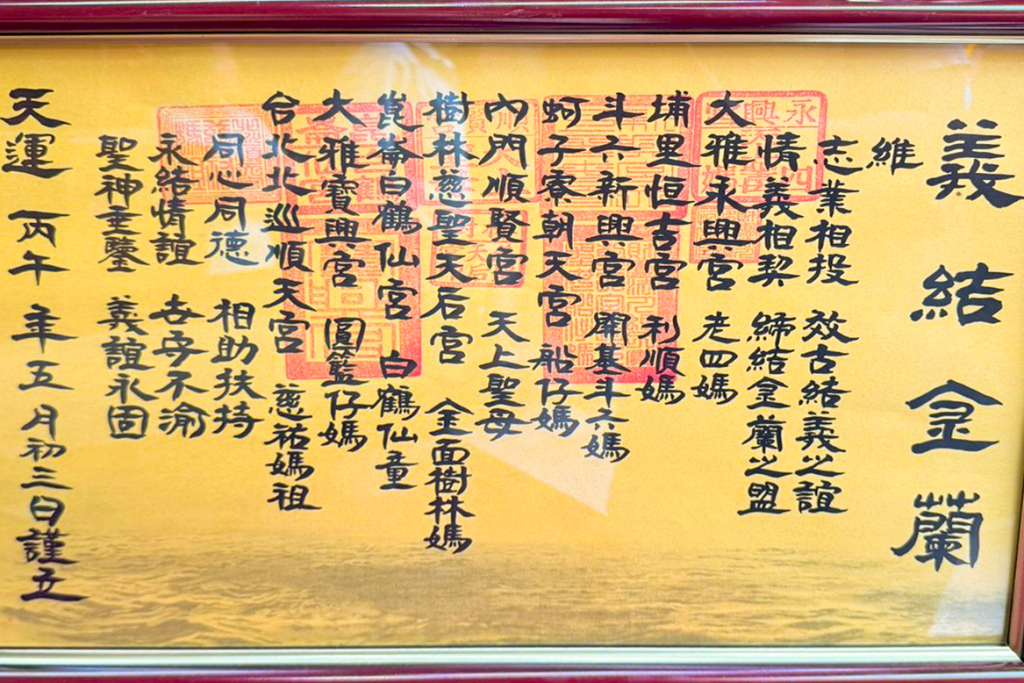 義結金蘭
維
志業相投 效古結義之誼
情義相契 締結金蘭之盟
大雅永興宮 老四媽
埔里恒吉宮 利順媽
斗六新興宮 開基斗六媽
蚵子寮朝天宮 船仔媽
內門順賢宮 天上聖母
樹林慈聖天后宮 金面樹林媽
崑崙白鶴仙宮 白鶴仙童
大雅寶興宮 圓籃仔媽
台北北巡順天宮 慈祐媽祖
同心同德 相助扶持
永結情誼 去守不渝
聖神垂鑒 義誼永固
天運丙午年五月初三日謹立